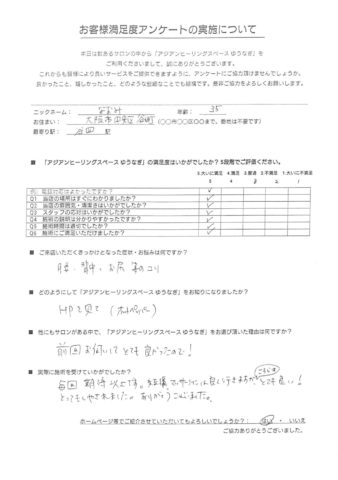 お客様満足度アンケートの実施について
本日は数あるサロンの中から「アジアンヒーリングスペース ゆうなぎ」を
ご利用くださいまして、誠にありがとうございます。
これからも皆様により良いサービスをご提供できますように、アンケートにご協力頂けませんでしょうか。
良かったこと、嬉しかったこと、どのような些細なことでも結構です。是非ご協力をよろしくお願いします。
ニックネーム： なおみ 年齢： 35
お住まい： 大阪市中央区谷町 (○○市○○区○○まで。番地は不要です)
最寄り駅： 駅
■ 「アジアンヒーリングスペース ゆうなぎ」の満足度はいかがでしたか？ 5段階でご評価ください。
5.大いに満足 4.満足 3.普通 2.不満足 1.大いに不満足
5 4 3 2 1
例）電話対応はよかったですか？
Q1 当店の場所はすぐにわかりましたか？
Q2 当店の雰囲気・清潔さはいかがでしたか？
Q3 スタッフの応対はいかがでしたか？
Q4 施術の説明は分かりやすかったですか？
Q5 施術時間は適切でしたか？
Q6 施術にご満足いただけましたか？
■ ご来店いただくきっかけとなった症状・お悩みは何ですか？
肩、背中、お尻 のコリ
■ どのようにして「アジアンヒーリングスペース ゆうなぎ」をお知りになりましたか？
HPを見て (ホットペッパー)
■ 他にもサロンがある中で、「アジアンヒーリングスペース ゆうなぎ」をお選び頂いた理由は何ですか？
前回お伺いして とても良かったので！
■ 実際に施術を受けていかがでしたか？
毎回 期待以上です。 とても良い！
ありがとうございました。
ホームページ等でご紹介させていただいてもよろしいでしょうか？： はい ・ いいえ
ご協力ありがとうございました。